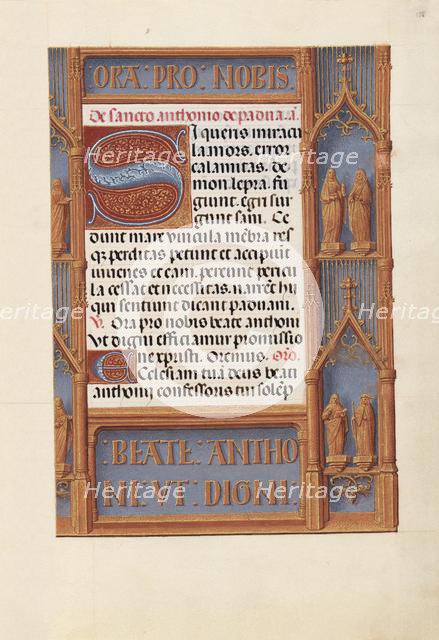 ORA : PRO : NOBIS
De sancto anthonio de padua. a.
Si queris miracu
la mors. error
calamitas. de
mon lepra. fu
giunt. Egri sur
gunt sani. Ce
dunt mare vincula mēbra res
q₃ perditas petunt et accipiūt
iuuenes et cani. pereunt pericu
la cessat et necessitas. narrent hi
qui sentiunt dicant paduani.
V. Ora pro nobis beate anthoni
Vt digni efficiamur promissio
ne xpristi. Oremus. Orō.
Ecclesiam tuā deus beati
anthonij confessoris tui solēp
: BEATE : ANTHO
NI : VT : DIGNI :
Heritage Heritage Heritage
Heritage Heritage Heritage
Heritage Heritage Heritage
Heritage Heritage Heritage